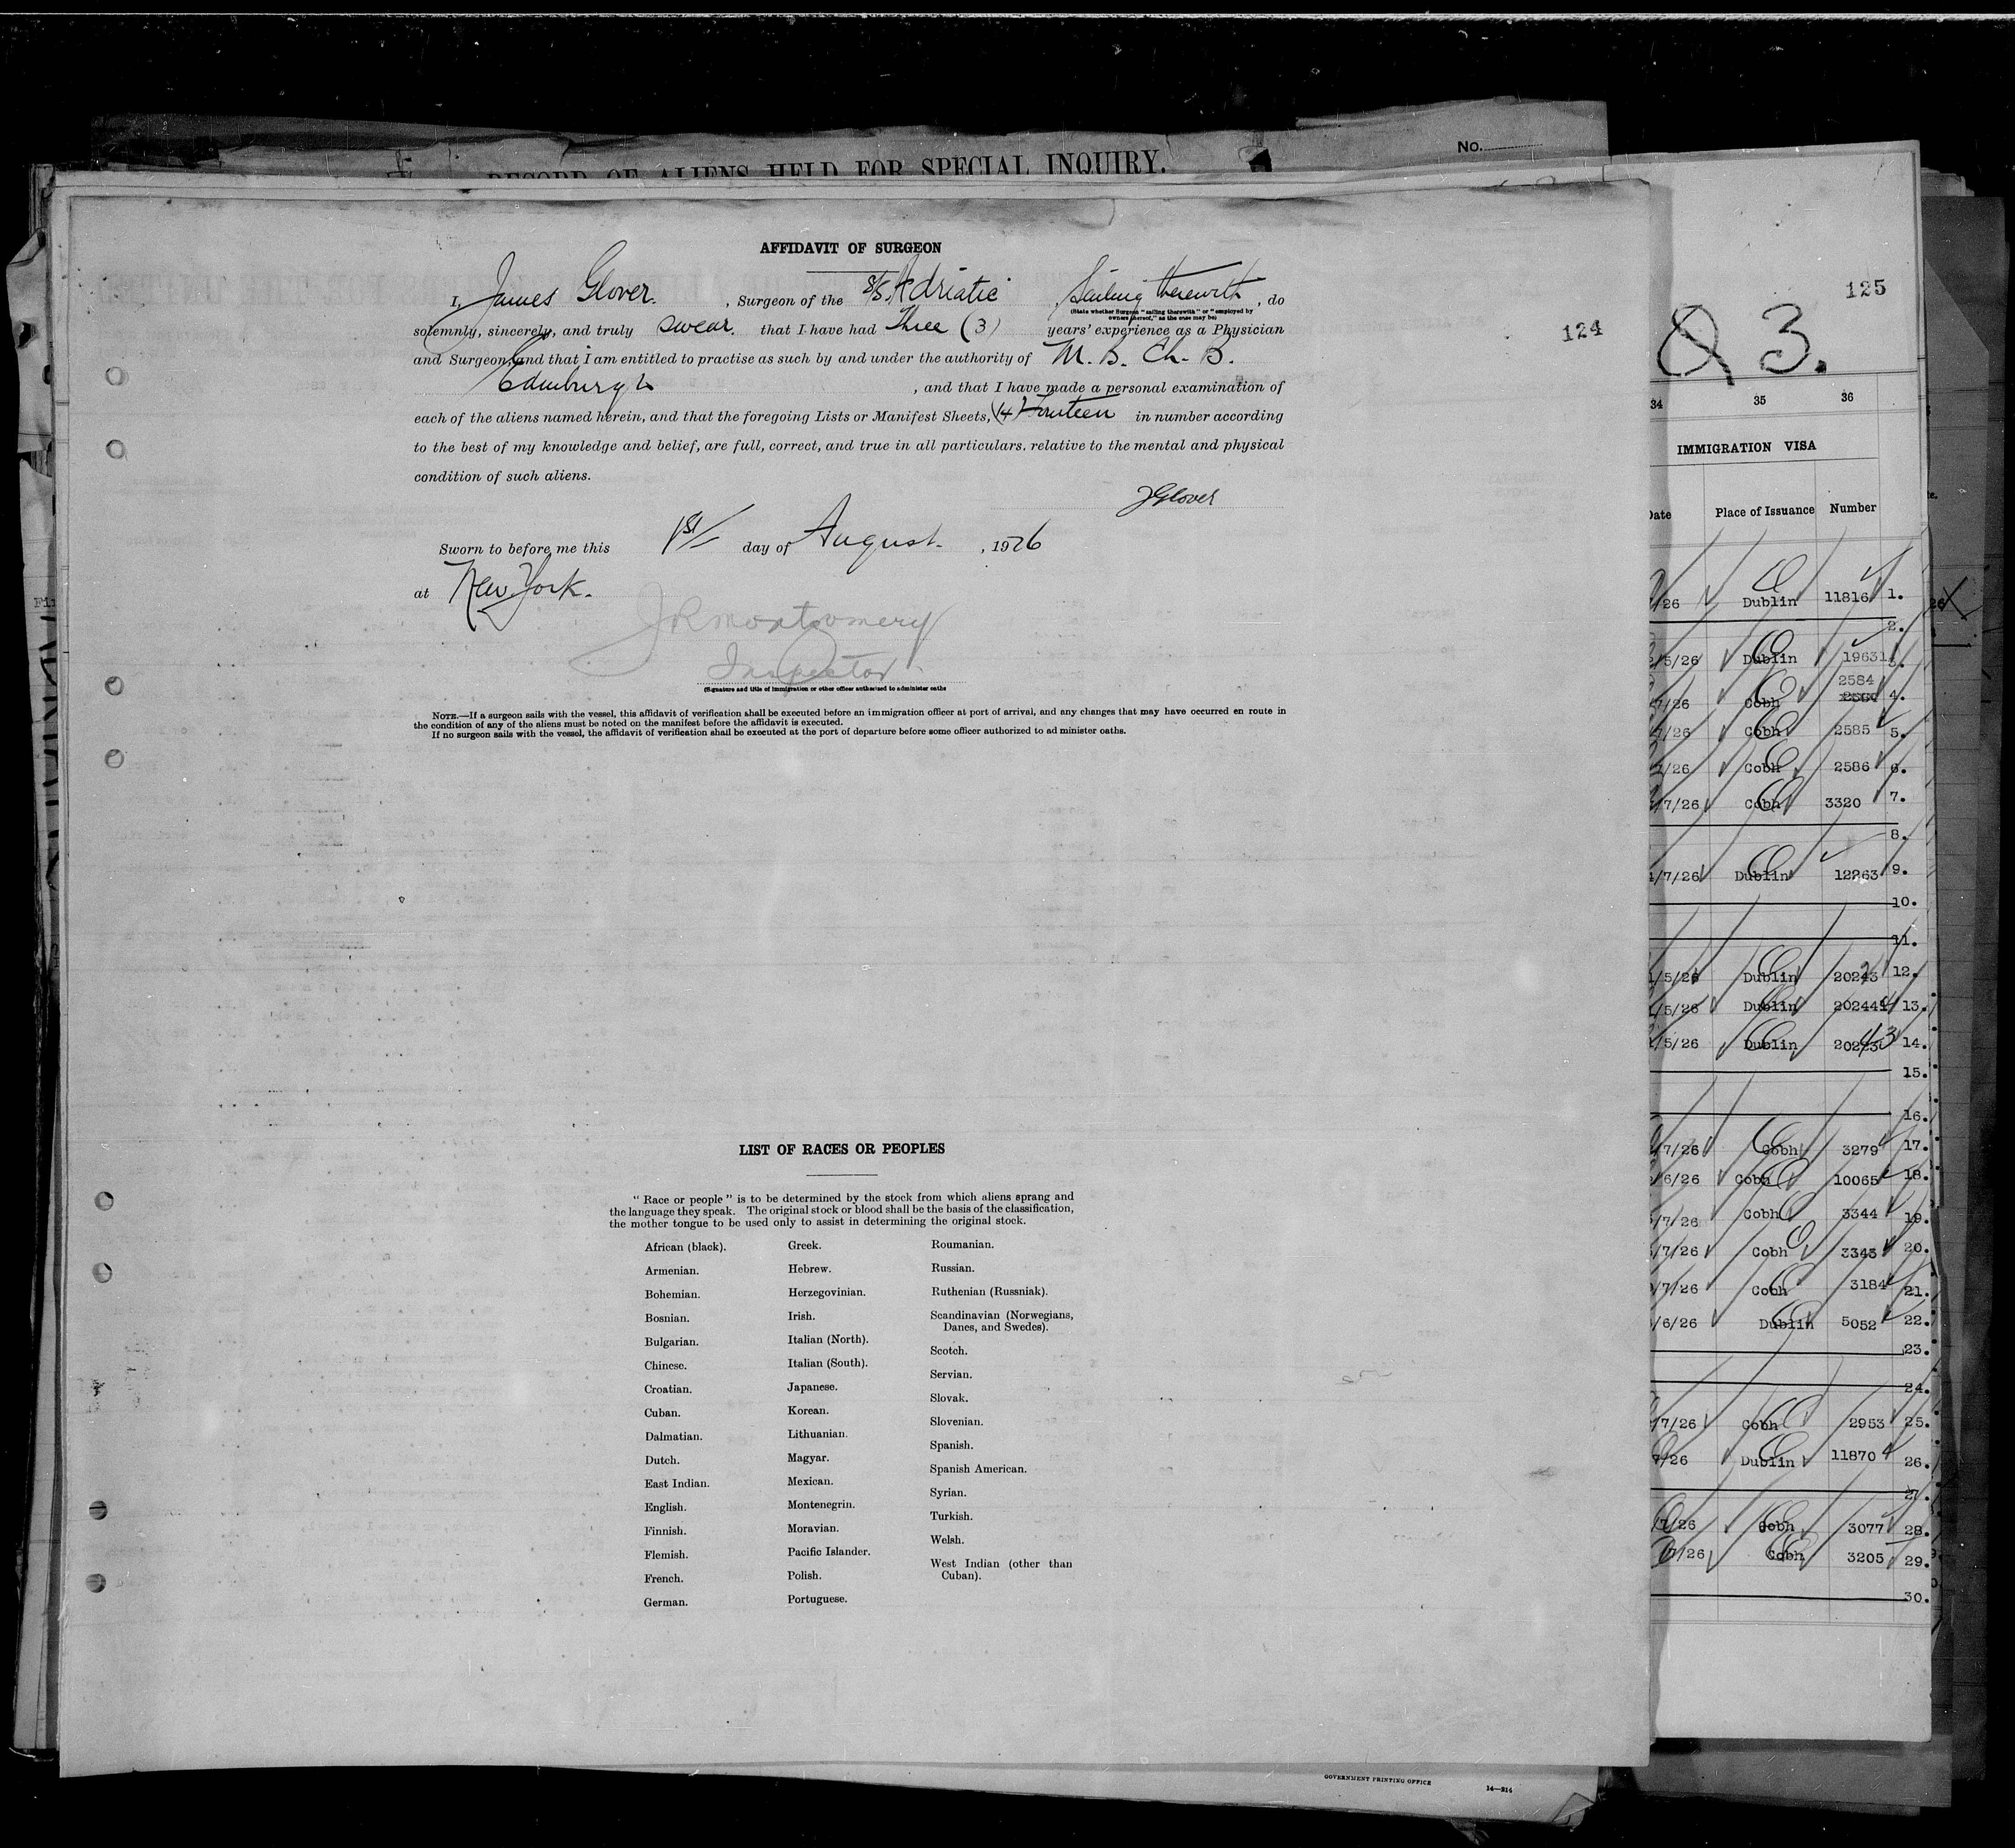 No.
RECORD OF ALIENS HELD FOR SPECIAL INQUIRY.
124
AFFIDAVIT OF SURGEON
I, James Glover. , Surgeon of the S/S. Adriatic Sailing therewith , do
(State whether Surgeon "sailing therewith" or "employed by
owners thereof," as the case may be)
solemnly, sincerely, and truly swear. that I have had Three (3) years' experience as a Physician
and Surgeon, and that i am entitled to practise as such by and under the authority of M. B. Ch. B.
Edinburgh , and that I have made a personal examination of
each of the aliens named herein, and that the foregoing Lists or Manifest Sheets, (14) Fourteen in number according
to the best of my knowledge and belief, are full, correct, and true in all particulars. relative to the mental and physical
condition of such aliens.
J Glover
Sworn to before me this 1st/ day of August. , 1926
at New York.
J R Montgomery
Inspector
(Signature and title of immigration or other officer authorised to administer oaths
NOTE.—If a surgeon sails with the vessel, this affidavit of verification shall be executed before an immigration officer at port of arrival, and any changes that may have occurred en route in
the condition of any of the aliens must be noted on the manifest before the affidavit is executed.
If no surgeon sails with the vessel, the affidavit of verification shall be executed at the port of departure before some officer authorized to ad minister oaths.
LIST OF RACES OR PEOPLES
" Race or people " is to be determined by the stock from which aliens sprang and
the language they speak. The original stock or blood shall be the basis of the classification,
the mother tongue to be used only to assist in determining the original stock.
African (black).
Armenian.
Bohemian.
Bosnian.
Bulgarian.
Chinese.
Croatian.
Cuban.
Dalmatian.
Dutch.
East Indian.
English.
Finnish.
Flemish.
French.
German.
Greek.
Hebrew.
Herzegovinian.
Irish.
Italian (North).
Italian (South).
Japanese.
Korean.
Lithuanian.
Magyar.
Mexican.
Montenegrin.
Moravian.
Pacific Islander.
Polish.
Portuguese.
Roumanian.
Russian.
Ruthenian (Russniak).
Scandinavian (Norwegians,
Danes, and Swedes).
Scotch.
Servian.
Slovak.
Slovenian.
Spanish.
Spanish American.
Syrian.
Turkish.
Welsh.
West Indian (other than
Cuban).
GOVERNMENT PRINTING OFFICE 14—814
125
3.
34 35 36
IMMIGRATION VISA
Date Place of Issuance Number
/26 Dublin 11816 1.
2.
/5/26 Dublin 19631 3.
2584
7/26 Cobh 4.
7/26 Cobh 2585 5.
/26 Cobh 2586 6.
/7/26 Cobh 3320 7.
8.
/7/26 Dublin 12263 9.
10.
11.
/5/26 Dublin 20243 12.
/5/26 Dublin 20244 13.
/5/26 Dublin 14.
15.
16.
/7/26 Cobh 3279 17.
/6/26 Cobh 10065 18.
/7/26 Cobh 3344 19.
/7/26 Cobh 3343 20.
/7/26 Cobh 3184 21.
/6/26 Dublin 5052 22.
23.
24.
/7/26 Cobh 2953 25.
7/26 Dublin 11870 26.
27.
/7/26 Cobh 3077 28.
/7/26 Cobh 3205 29.
30.